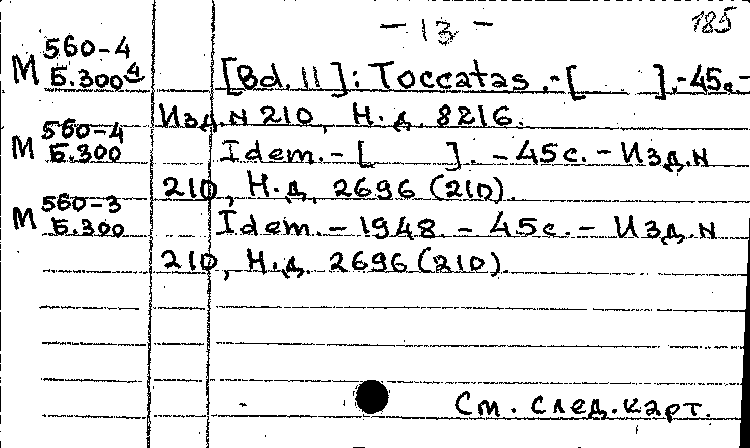 - 13 - 185
М 560-4
Б.300⁴ [Bd. II]: Toccatas.-[ ].-45с.-
Изд.N 210, Н.д. 8216.
М 560-4
Б.300 Idem.-[ ]. -45с.- Изд.N
210, Н.д. 2696 (210).
М 560-3
Б.300 Idem.- 1948.- 45с.- Изд.N
210, Н.д. 2696 (210).
См. след.карт.